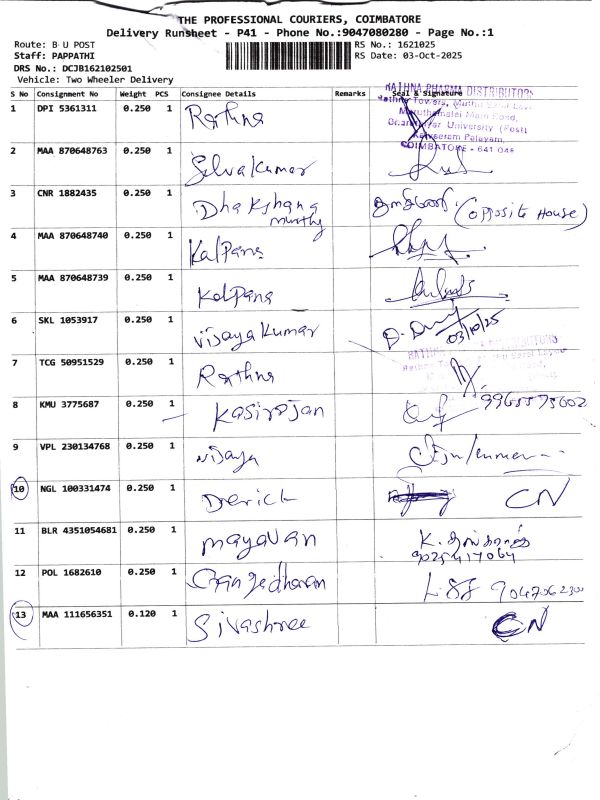 THE PROFESSIONAL COURIERS, COIMBATORE
Delivery Runsheet - P41 - Phone No.:9047080280 - Page No.:1
Route: B U POST
RS No.: 1621025
Staff: PAPPATHI
RS Date: 03-Oct-2025
DRS No.: DCJB162102501
Vehicle: Two Wheeler Delivery
S No Consignment No Weight PCS Consignee Details Remarks Seal & Signature
RATHNA PHARMA DISTRIBUTORS
1 DPI 5361311 0.250 1 Rathna
COIMBATORE - 641 046
2 MAA 870648763 0.250 1 Selvakumar
3 CNR 1882435 0.250 1 Dhakshana
murthy
(opposite House)
4 MAA 870648740 0.250 1 Kalpana
5 MAA 870648739 0.250 1 Kalpana
6 SKL 1053917 0.250 1 vijayakumar
03/10/25
7 TCG 50951529 0.250 1 Rathna
8 KMU 3775687 0.250 1 Kasirajan
9 VPL 230134768 0.250 1 vijaya
10 NGL 100331474 0.250 1 Derick CN
11 BLR 4351054681 0.250 1 mayavan
12 POL 1682610 0.250 1 Gangadharan
13 MAA 111656351 0.120 1 Sivashree CN